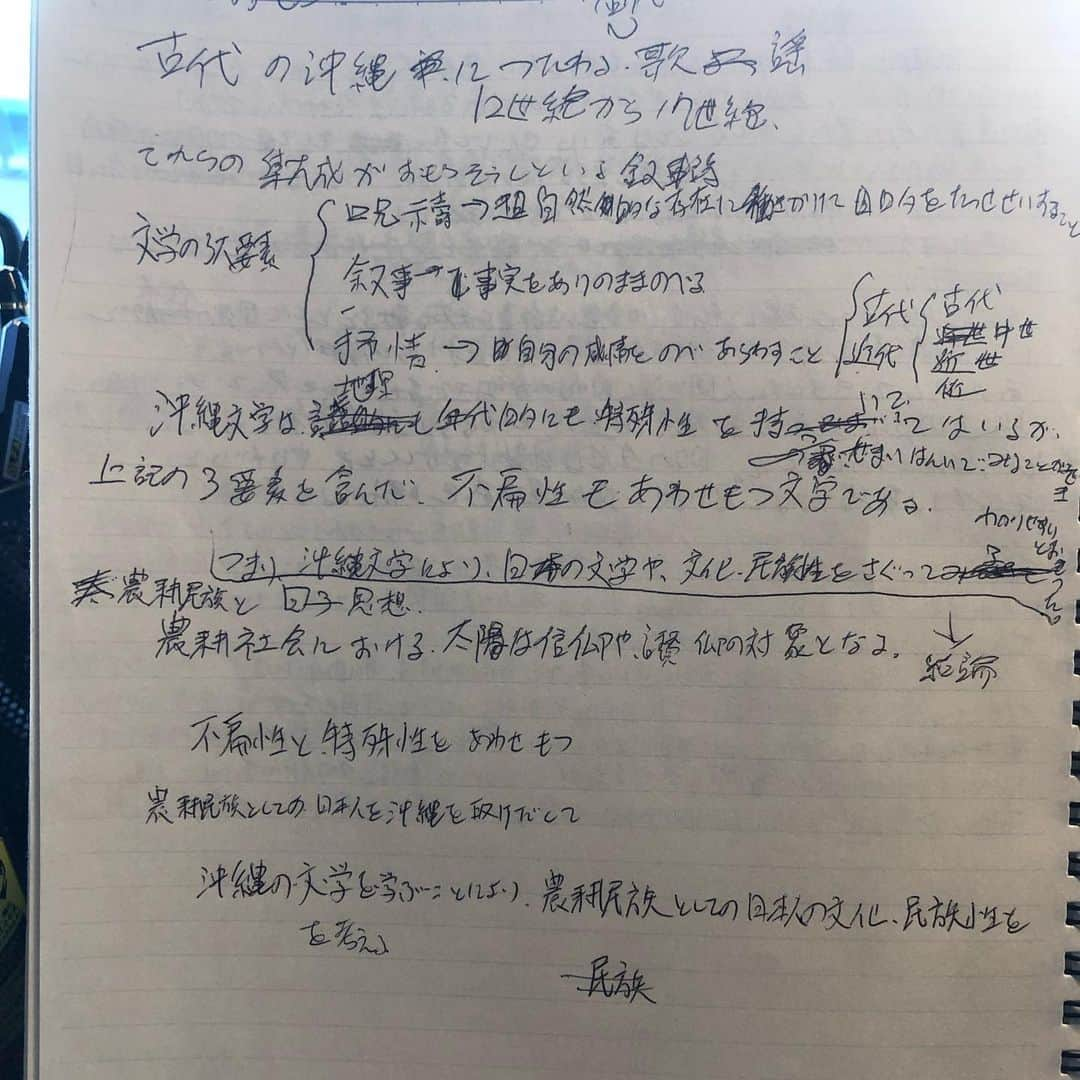 古代の沖縄につたわる歌謡
12世紀から17世紀、
これらの集大成がおもろそうしという叙事詩
文学の3要素
呪祷→超自然的な存在に働きかけて自分をたっせいすること
叙事→事実をありのままのべる
抒情→自分の感情をのべあらわすこと
古代
近代
古代
中世
近世
地理
沖縄文学は、年代的にも特殊性を持っていてはいるが、
せまいはんいで
上記の3要素を含んだ、不扁性もあわせもつ文学である。
つまり、沖縄文学により、日本の文学や、文化、民族性をさぐって
農耕民族と日子思想.
農耕社会における、太陽は信仰や、讃仰の対象となる。
結論
不扁性と特殊性をあわせもつ
農耕民族としての日本人を沖縄を取りだして
沖縄の文学を学ぶことにより、農耕民族としての日本人の文化、民族性を
を考える
民族